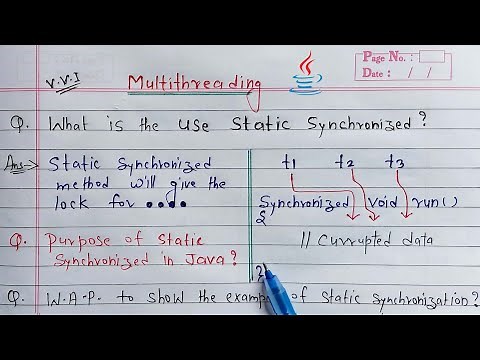 Page No. :
Date : / /
V.V.I
Multithreading
Q. What is the use Static Synchronized?
Ans:-> Static Synchronized
method will give the
lock for ....
t1 t2 t3
Synchronized void run()
{
// Currupted data
Q. Purpose of Static
Synchronized in Java?
Q. W.A.P. to show the example of Static Synchronization?